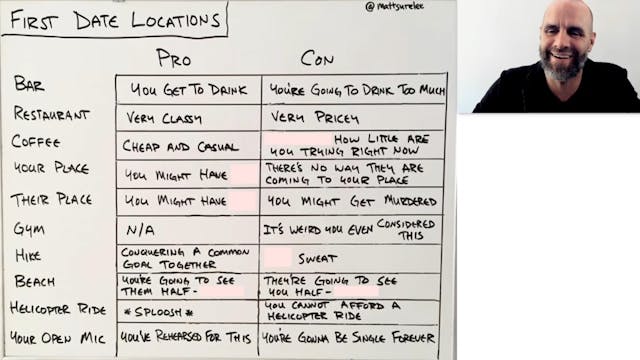 First Date Locations
@mattsurelee
Pro Con
Bar You Get To Drink You're Going To Drink Too Much
Restaurant Very Classy Very Pricey
Coffee Cheap and Casual How Little Are
You Trying Right Now
Your Place You Might Have There's No Way They Are
Coming To Your Place
Their Place You Might Have You Might Get Murdered
Gym N/A It's Weird You Even Considered
This
Hike Conquering A Common
Goal Together Sweat
Beach You're Going To See
Them Half- They're Going To See
You Half-
Helicopter Ride *Sploosh* You Cannot Afford A
Helicopter Ride
Your Open Mic You've Rehearsed For This You're Gonna Be Single Forever